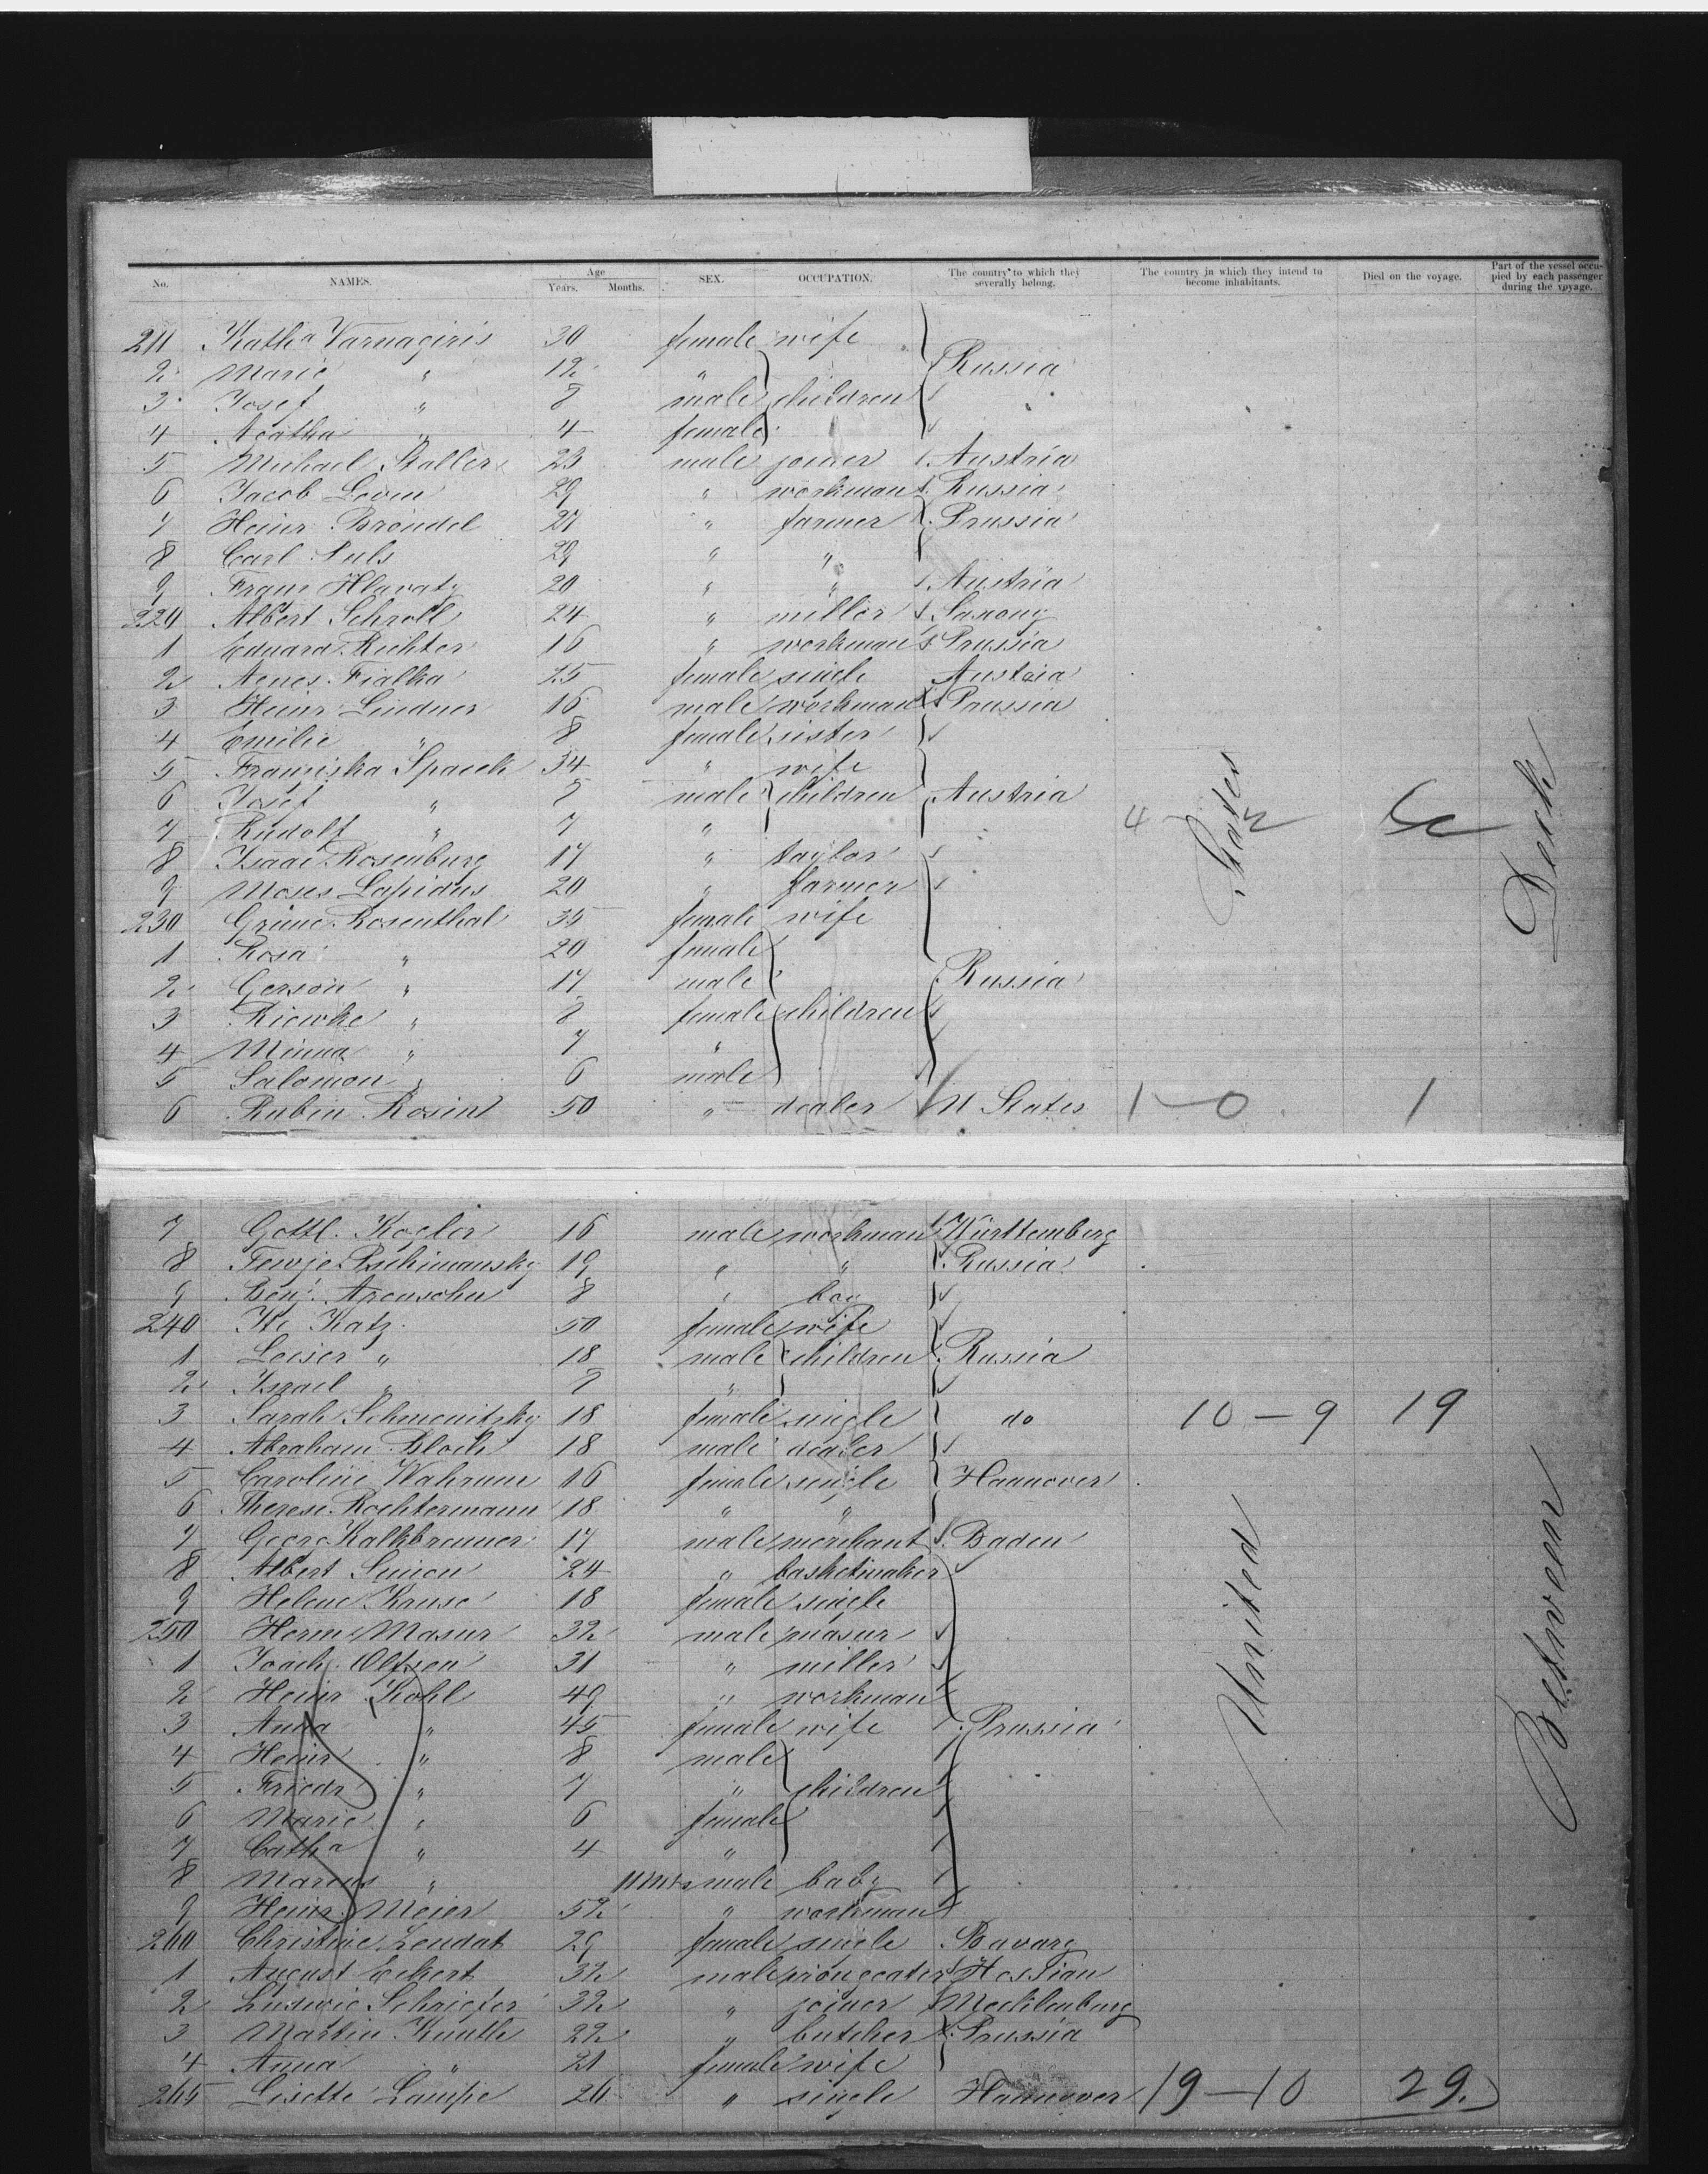 No. NAMES. Age Years. Months. SEX. OCCUPATION. The country to which they severally belong. The country in which they intend to become inhabitants. Died on the voyage. Part of the vessel occupied by each passenger during the voyage.
211 Kath^a Varnagiris 30 female wife
2 Marie " 12 " Russia
3 Josef " 8 male children
4 Agatha " 4 female
5 Michael Staller 23 male joiner Austria
6 Jacob Levin 29 " workman Russia
7 Heinr. Bröndel 27 " farmer Prussia
8 Carl Suls 29 " "
9 Franz Hlavaty 20 " " Austria
220 Albert Schroll 24 " miller Saxony
1 Eduard Richter 16 " workman Prussia
2 Agnes Fialka 25 female single Austria
3 Heinr. Lindner 16 male workman Prussia
4 Emilie " 8 female sister
5 Franziska Spacek 34 " wife
6 Josef " 8 male children Austria
7 Rudolf " 7 "
8 Isaac Rosenburg 17 " taylor
9 Moses Lapidus 20 " farmer
230 Grüne Rosenthal 35 female wife
1 Rosa " 20 female
2 Gerson " 17 male Russia
3 Riewke " 8 female children
4 Minna " 7 "
5 Salomon " 6 male
6 Rubin Rosin 50 " dealer U States 1 - 0 1
7 Gottl. Kogler 16 male workman Württemberg
8 Fewje Pschimansky 19 " " Russia
9 Benj. Aronsohn 8 " boy
240 Ite Katz 50 female wife
1 Leiser " 18 male children Russia
2 Israel " 8 "
3 Sarah Schmonitzky 18 female single do 10 - 9 19
4 Abraham Bloch 18 male dealer
5 Caroline Wahrum 16 female single Hannover
6 Therese Rochtermann 18 " "
7 Georg Kalkbrenner 17 male merchant Baden
8 Albert Simon 24 " basketmaker
9 Helene Kruse 18 female single
250 Herm. Masur 32 male masur
1 Joach. Olfsen 31 " miller
2 Heinr. Kohl 49 " workman
3 Anna " 45 female wife Prussia
4 Heinr " 8 male
5 Friedr " 7 " children
6 Marie " 6 female
7 Cath^a " 4 "
8 Marcus " 11 mts male baby
9 Heinr. Meier 52 " workman
260 Christine Lendat 29 female single Bavary
1 August Eckert 32 male Hessian
2 Ludwig Schriefer 32 " joiner Mecklenburg
3 Martin Kunth 22 " butcher Prussia
4 Anna " 21 female wife
265 Lisette Lampe 26 " single Hannover 19 - 10 29.
United States
Between Deck